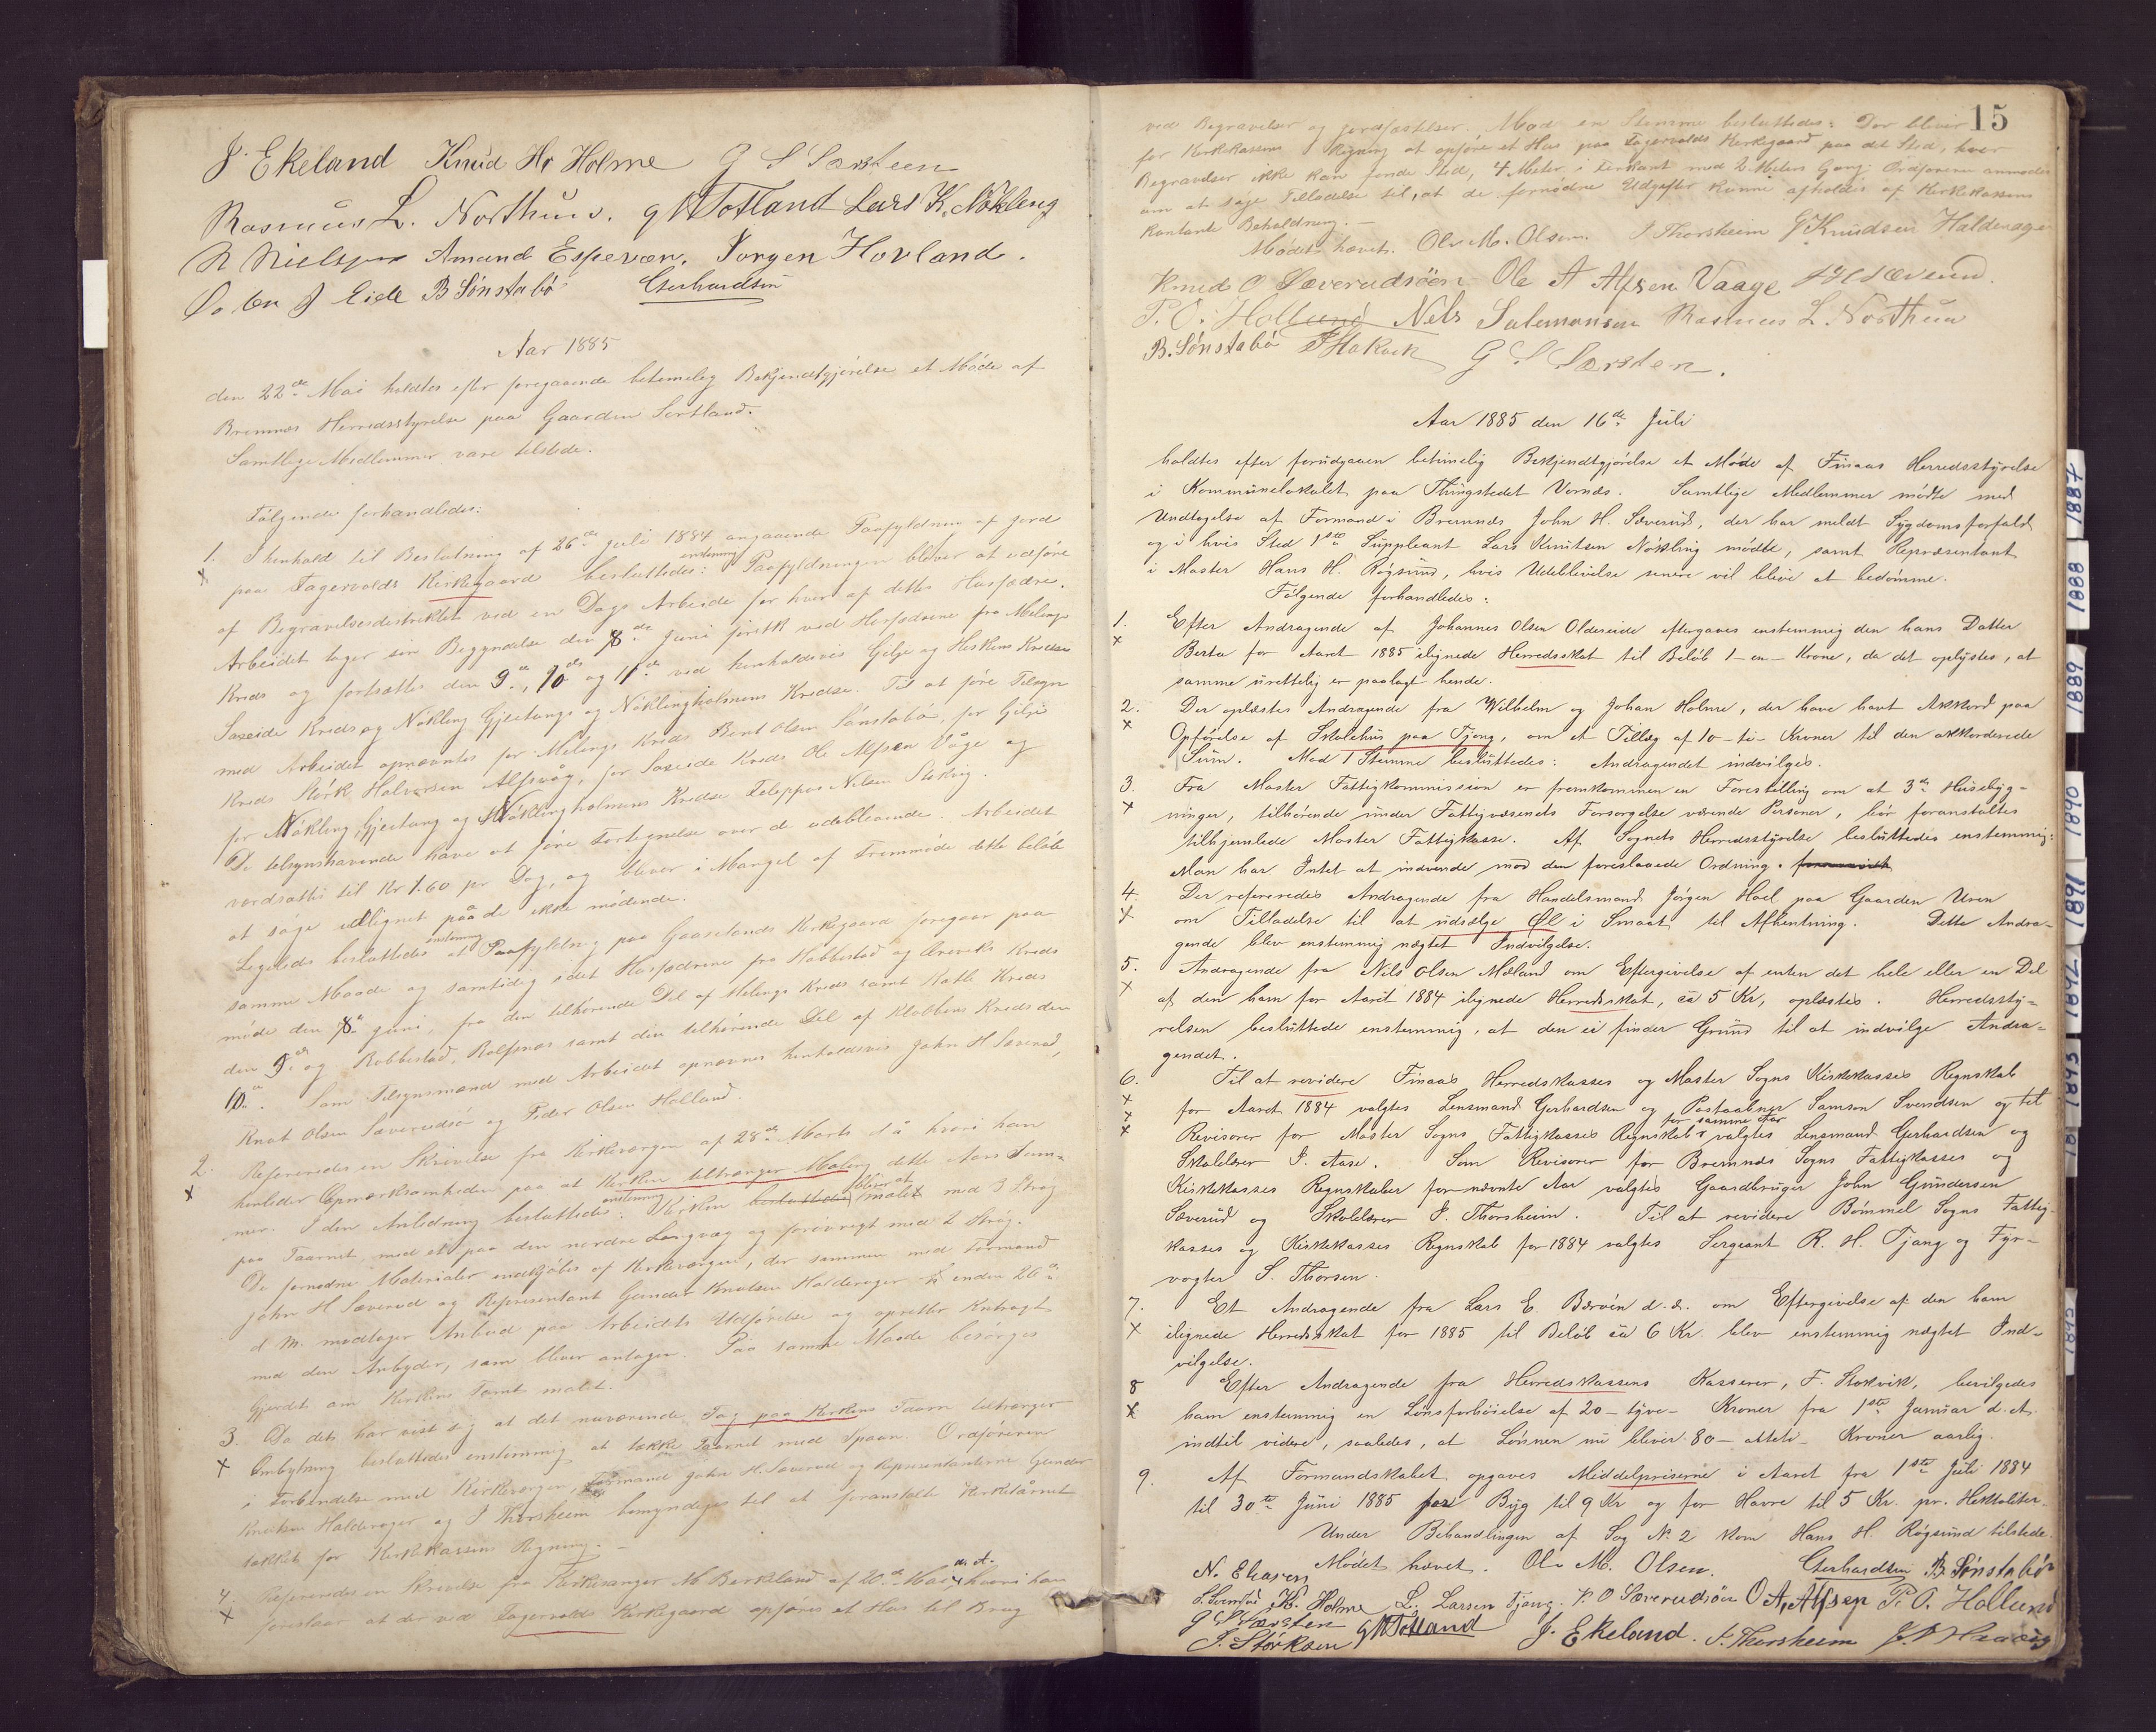 J. Ekeland Knud Hr Holme G S Særsteen
Rasmus L. Northun. G W Totland Lars K. Nökling
N Nielsen Amund Espevær. Jorgen Hovland.
J Eide B Sönstabö Gerhardsen
Aar 1885
den 22de Mai holdtes efter foregaaende betimelig Bekjendtgjörelse et Möde af
Bremnes Herredsstyrelse paa Gaarden Sortland.
Samtlige Medlemmer vare tilstede.
Fölgende forhandledes:
1. I henhold til Beslutning af 26de Juli 1884 angaaende Paafyldning af Jord
x paa Fagervolds Kirkegaard besluttedes enstemmig: Paafyldningen bliver at udföre
af Begravelsesdistriktet ved en Dags Arbeide for hver af dettes Husfædre.
Arbeidet tager sin Begyndelse den 8de Juni förstk ved Husfædrene fra Melings
Kreds og fortsættes den 9de, 10de og 11de ved henholdsvis Gilje og Hiskens Kredse
Saxeide Kreds og Nökling Gjeitungs og Nöklingholmens Kredse. Til at före Tilsyn
med Arbeidet opnævntes for Melings Kreds Bent Olsen Sönstabö, for Gilje
Kreds Störk Halvorsen Alfsvåg, for Saxeide Kreds Ole Alfsen Våge og
for Nökling, Gjeitung og Nöklingholmens Kredse Feleppus Nilsen Stokvig.
De tilsynshavende have at före Fortegnelse over de udeblivende. Arbeidet
værdsættes til Kr 1.60 pr Dag, og bliver i Mangel af Fremmöde dette Belöb
at söge udlignet på de ikke mödende.
Ligeledes besluttedes enstemmig at Paafyldning paa Gaaselands Kirkegaard foregaar paa
samme Maade og samtidig idet Husfædrene fra Habbestad og Kreds
möde den 8de Juni, fra den tilhörende Del af Melings Kreds samt Katle Kreds
den 9de og Robbestad, Rolfsnes samt den tilhörende Del af Klubbens Kreds den
10de. Som Tilsynsmænd med Arbeidet opnævnes henholdsvis John H Sæverud,
Knut Olsen Sæverudsö og Peder Olsen Hollund.
2. Refereredes en Skrivelse fra Kirkevergen af 28de Marts d å hvori han
x henleder Opmærksomheden paa at Kirken tiltrænger Maling dette Aars Som-
mer. I den Anledning besluttedes enstemmig: Kirken bliver at malet med 3 Strög
paa Taarnet, med et paa den nordre Langvæg og forövrigt med 2 Strög.
De fornödne Materialer indkjöbes af Kirkevergen, der sammen med Formand
John H Sæverud og Repræsentant Gunder Knutsen Halderager inden 26de
d M. modtager Anbud paa Arbeidets Udförelse og opretter Kontragt
med den Anbyder, som bliver antagen. Paa samme Maade besörges
Gjerdet om Kirkens Tomt malet.
3. Da det har vist sig at det nuværende Tag paa Kirkens Taarn tiltrænger
x Ombytning besluttedes enstemmig at tække Taarnet med Spaan. Ordföreren
i Forbindelse med Kirkevergen, Formand John H. Sæverud og Repræsentanterne Gunder
Knutsen Halderager og J Thorsheim bemyndiges til at foranstalte Kirketårnet
tækket for Kirkekassens Regning.
4. Refereredes en Skrivelse fra Kirkesanger M Birkeland af 20de Mai d. A. hvori han
x foreslaar at der ved Fagervolds Kirkegaard opföres et Hus til Brug
15
ved Begravelser og Jordfæstelser. Mod en Stemme besluttedes: Der bliver
for Kirkekassens Regning at opföre et Hus paa Fagervolds Kirkegaard paa det Sted, hvor
Begravelser ikke kan finde Sted, 4 Meter i Firkant med 2 Meters Gang. Ordföreren anmodes
om at söge Tilladelse til, at de fornödne Udgifter kunne afholdes af Kirkekassens
kontante Beholdning.
Mödet hævet. Ole M. Olsen. J Thorsheim G Knudsen Halderager
Knud O Sæverudsöen Ole A Alfsen Vaage J H Sæverud.
P. O. Hollund Nels Salemonsen Rasmus L. Northun
B. Sönstabö G S Særsten.
Aar 1885 den 16de Juli
holdtes efter forudgaaen betimelig Bekjendtgjörelse et Möde af Finaas Herredsstyrelse
i Kommunelokalet paa Thingstedet Vornæs. Samtlige Medlemmer mödte med
Undtagelse af Formand i Bremnæs John H. Sæverud, der har meldt Sygdomsforfald
og i hvis Sted 1ste Suppleant Lars Knutsen Nökling mödte, samt Repræsentant
i Moster Hans H. Rögsund, hvis Udeblivelse senere vil blive at bedömme.
Fölgende forhandledes:
1. Efter Andragende af Johannes Olsen Olderseide eftergaves enstemmig den hans Datter
x Berta for Aaret 1885 ilignede Herredsskat til Belöb 1 - en - Krone, da det oplystes, at
samme urettelig er paalagt hende.
2. Der oplæstes Andragende fra Wilhelm og Johan Holme, der have havt Akkord paa
x Opförelse af Skolehus paa Tjong, om et Tillæg af 10 - ti - Kroner til den akkorderede
Sum. Mod 1 Stemme besluttedes: Andragendet indvilges.
3. Fra Moster Fattigkommission er fremkommen en Forestilling om at 3de Husebyg-
x ninger, tilhörende under Fattigvæsenets Forsorgelse værende Personer, bör foranstaltes
tilhjemlede Moster Fattigkasse. Af Sognets Herredsstyrelse besluttedes enstemmig:
Man har Intet at indvende mod den foreslaaede Ordning.
4. Der refereredes Andragende fra Handelsmand Jörgen Hoel paa Gaarden Uren
x om Tilladelse til at udsælge Öl i Smaat til Afhentning. Dette Andra-
gende blev enstemmig nægtet Indvilgelse.
5. Andragende fra Nils Olsen Mæland om Eftergivelse af enten det hele eller en Del
x af den ham for Aaret 1884 ilignede Herredsskat, ca 5 Kr, oplæstes. Herredssty-
relsen besluttede enstemmig, at den ei finder Grund til at indvilge Andra-
gendet.
6. Til at revidere Finaas Herredskasses og Moster Sogns Kirkekasses Regnskab
x for Aaret 1884 valgtes Lensmand Gerhardsen og Postaabner Samson Svendsen og til
x Revisorer for Moster Sogns Fattigkasses Regnskab for samme Aar valgtes Lensmand Gerhardsen og
x Skolelærer J. Aase. Som Revisorer for Bremnæs Sogns Fattigkasses og
Kirkekasses Regnskaber for nævnte Aar valgtes Gaardbruger John Gundersen
Sæverud og Skolelærer J. Thorsheim. Til at revidere Bömmel Sogns Fattig-
kasses og Kirkekasses Regnskab for 1884 valgtes Sergeant R. H. Tjong og Fyr-
vogter S. Thorsen.
7. Et Andragende fra Lars E. Bærvén d. æ. om Eftergivelse af den ham
x ilignede Herredsskat for 1885 til Belöb ca 6 Kr. blev enstemmig nægtet Ind-
vilgelse.
8 Efter Andragende fra Herredskassens Kasserer, F. Stokvik, bevilgedes
x ham enstemmig en Lönsforhöielse af 20 - tyve - Kroner fra 1ste Januar d. A.
indtil videre, saaledes, at Lönnen nu bliver 80 - otteti - Kroner aarlig.
9. Af Formandskabet opgaves Middelpriserne i Aaret fra 1ste Juli 1884
til 30te Juni 1885 for Byg til 9 Kr og for Havre til 5 Kr. pr. Hektoliter.
Under Behandlingen af Sag No 2 kom Hans H. Rögsund tilstede.
Mödet hævet. Ole M. Olsen. Gerhardsen B Sönstabö
N. Eliasen
K. Holme L. Larsen Tjong. K O Sæverudsöen O A. Alfsen P. O. Hollund
G S Særsten G W Totland J. Ekeland. J. Thorsheim
J. Störksen
1887
1888
1889
1890
1891
1892
1893
1895